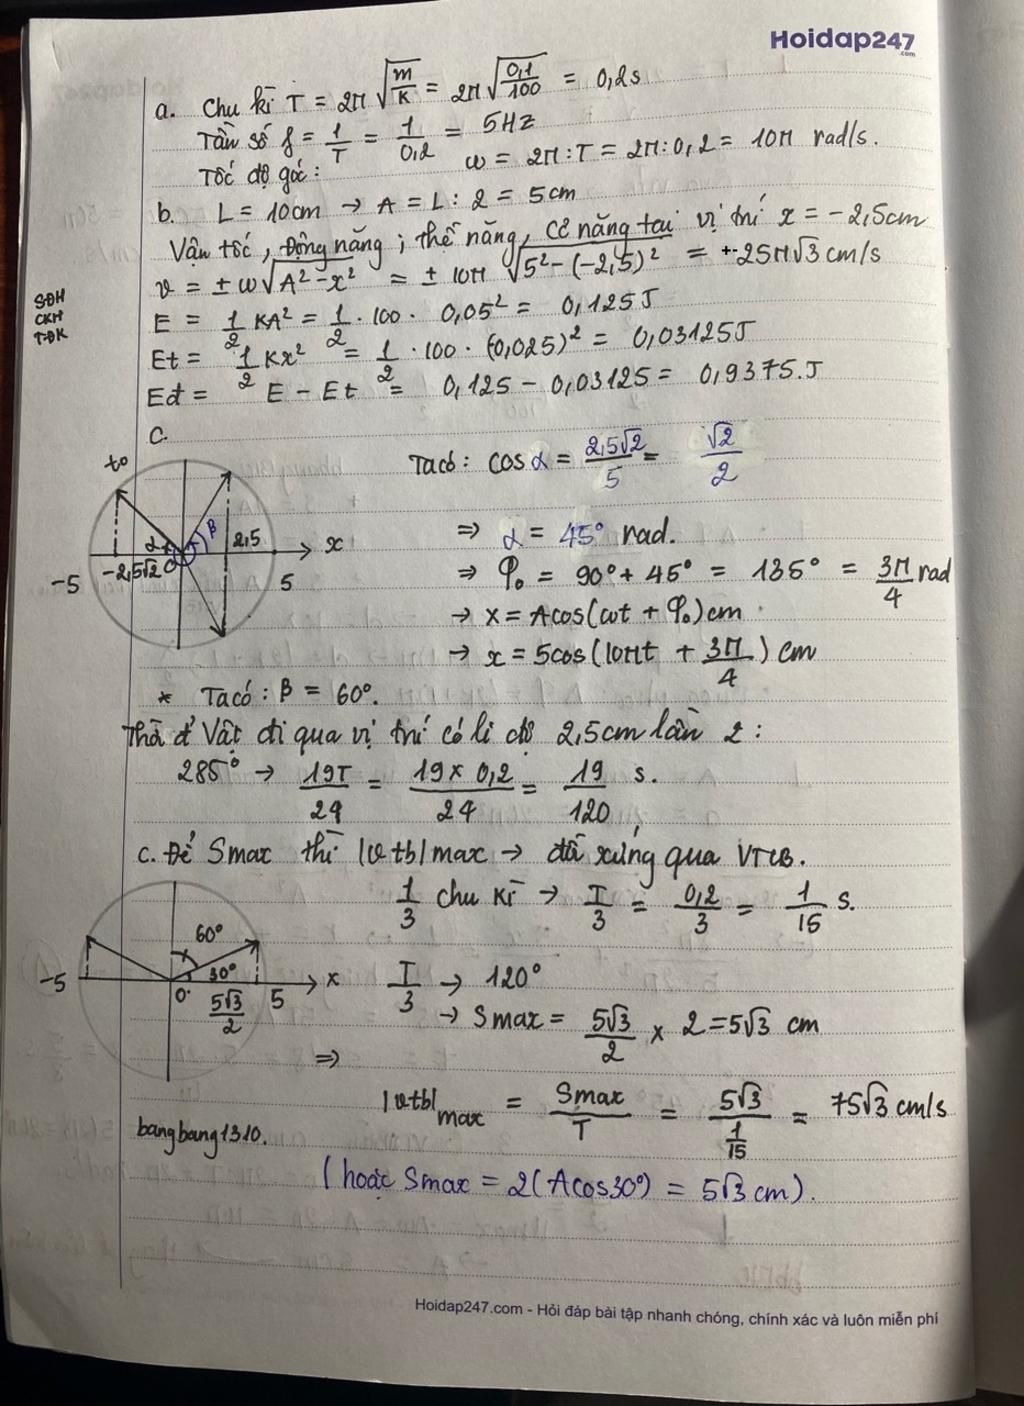 Hoidap247
.com
a. Chu kì T = 2π√(m/K) = 2π√(0,1/100) = 0,2s
Tần số f = 1/T = 1/0,2 = 5HZ
Tốc độ góc: ω = 2π:T = 2π:0,2 = 10π rad/s.
b. L = 10cm → A = L:2 = 5cm
Vận tốc, Động năng; thế năng, Cơ năng tại vị trí x = -2,5cm
v = ±ω√(A²-x²) = ±10π √(5²-(-2,5)²) = +-25π√3 cm/s
SĐH
CKH
TĐK
E = 1/2 KA² = 1/2 . 100 . 0,05² = 0,125J
Et = 1/2 Kx² = 1/2 . 100 . (0,025)² = 0,03125J
Eđ = E - Et = 0,125 - 0,03125 = 0,9375.J
c.
to
Ta có: cos α = 2,5√2/5 = √2/2
β
α
2,5
x
-2,5√2
O
-5
5
=> α = 45° rad.
=> φ₀ = 90° + 45° = 135° = 3π/4 rad
→ x = Acos(ωt + φ₀)cm
→ x = 5cos(10πt + 3π/4) cm
* Ta có: β = 60°.
Vật đi qua vị trí có li độ 2,5cm lần 2:
285° → 19T/24 = 19 x 0,2/24 = 19/120 s.
c. Để Smax thì |vtb|max → đối xứng qua VTCB.
1/3 chu kì → T/3 = 0,2/3 = 1/15 s.
60°
30°
-5
O
5√3/2
5
x
T/3 → 120°
→ Smax = 5√3/2 x 2 = 5√3 cm
=>
|vtb|max = Smax/T = 5√3/(1/15) = 75√3 cm/s
bangbang1310.
(hoặc Smax = 2(Acos30°) = 5√3 cm).
Hoidap247.com - Hỏi đáp bài tập nhanh chóng, chính xác và luôn miễn phí